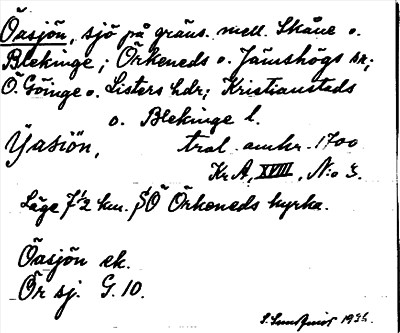 Öasjön, sjö på gräns. mell. Skåne o.
Blekinge; Örkeneds o. Jämshögs sr;
Ö. Göinge o. Listers hdr; Kristianstads
o. Blekinge l.
Yasiön, trol. omkr. 1700
Kr. A, XVIII, No 3.
Läge 7 1/2 km. SÖ Örkeneds kyrka.
Öasjön ek.
Ör sj. G. 10.
S. Sundquist 1936.